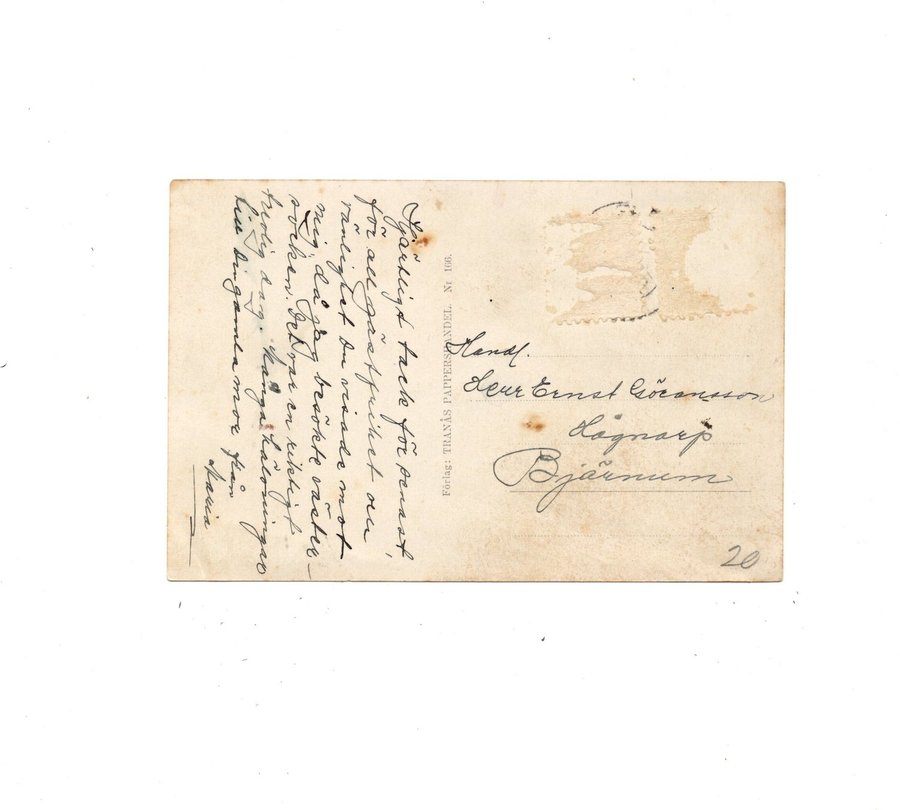 Hjärtligt tack för senast,
för all gästfrihet och
vänlighet du visade mot
mig, då jag besökte väster-
socken. Det var en riktigt
trevlig dag. Många hälsningar
till din gamla mor från
Maria
Förlag: TRANÅS PAPPERSHANDEL. Nr 166.
Handl.
Herr Ernst Göransson
Högnarp
Bjärnum
20